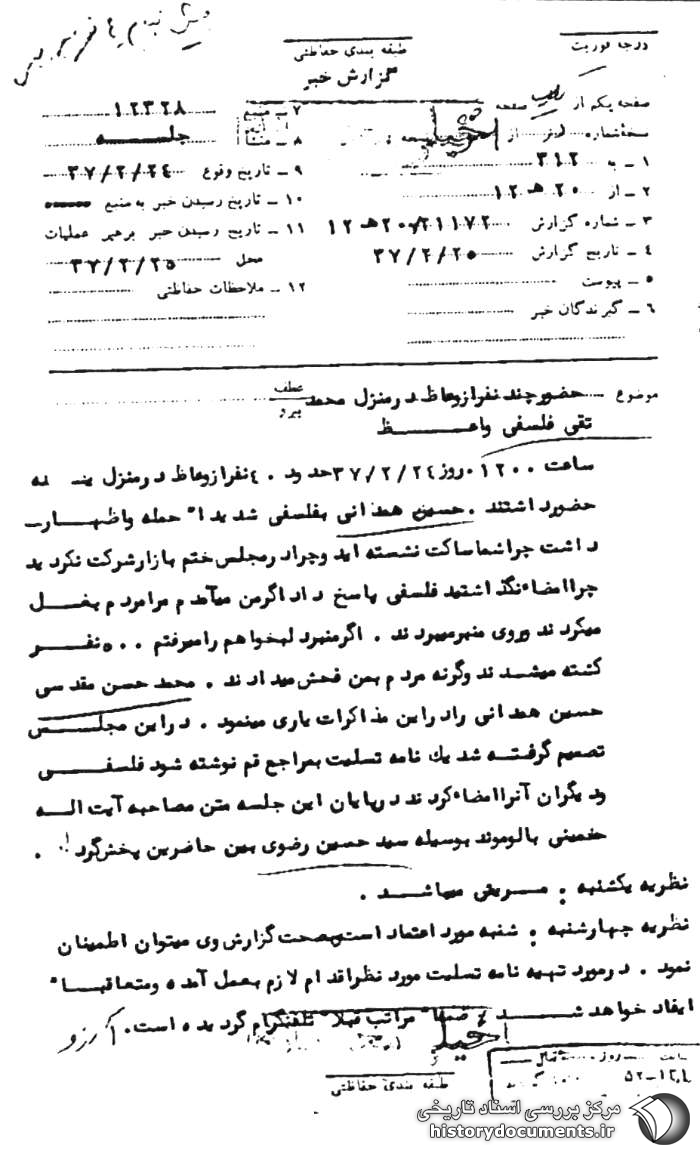 درجه فوریت
طبقه بندی حفاظتی
گزارش خبر
صفحه یکم از یک صفحه
نسخه شماره از
۱ ـ به ۳۱۲
۲ ـ از ۲۰ هـ ۱۲
۳ ـ شماره گزارش ۲۰/۲۱۱۷۲ هـ ۱۲
۴ ـ تاریخ گزارش ۳۷/۲/۲۵
۵ ـ پیوست
۶ ـ گیرندگان خبر
۷ ـ منبع ۱۲۳۲۸
۸ ـ منشأ جلسه
۹ ـ تاریخ وقوع ۳۷/۲/۲۴
۱۰ ـ تاریخ رسیدن خبر به منبع
۱۱ ـ تاریخ رسیدن خبر برهبر عملیات
محل ۳۷/۲/۲۵
۱۲ ـ ملاحظات حفاظتی
موضوع حضور چند نفر از وعاظ در منزل محمد عطف پیرو
تقی فلسفی واعـــظ
ساعت ۱۲۰۰ روز ۳۷/۲/۲۴ حدود ۴۰ نفر از وعاظ در منزل
حضور داشتند . حسین همدانی بفلسفی شدیدا" حمله واظهـار
داشت چرا شما ساکت نشسته اید وچرا در مجلس ختم بازار شرکت نکردید
چرا امضاء نگذاشتید فلسفی پاسخ داد اگر من میآمدم مرا مردم بغـل
میکردند وروی منبر میبردند . اگر منبر دلبخواهم را میرفتم ۵۰۰ نفـر
کشته میشدند وگرنه مردم بمن فحش میدادند . محمد حسن مقدسی
حسین همدانی را در این مذاکرات یاری مینمود . در این مجلـس
تصمیم گرفتـه شد یك نامه تسلیت بمراجع قم نوشته شود فلسفـی
ودیگران آنرا امضاء کردند در پایان این جلسه متن مصاحبه آیت الـه
خمینی با لوموند بوسیله سید حسین رضوی بین حاضرین پخش گردید .
نظریه یکشنبه : مـــرضی میباشـــد .
نظریه چهارشنبه : شنبه مورد اعتماد است بصحت گزارش وی میتوان اطمینان
نمود . در مورد تهیه نامه تسلیت مورد نظر اقدام لازم بعمل آمده ومتعاقبـا"
ایفاد خواهد شـــد ضمنا" مراتب قبلا" تلفنگرام گردیده است . آرزو
خیلی
طبقه بندی حفاظتی
ساعت روز
مرکز بررسی اسناد تاریخی
historydocuments.ir